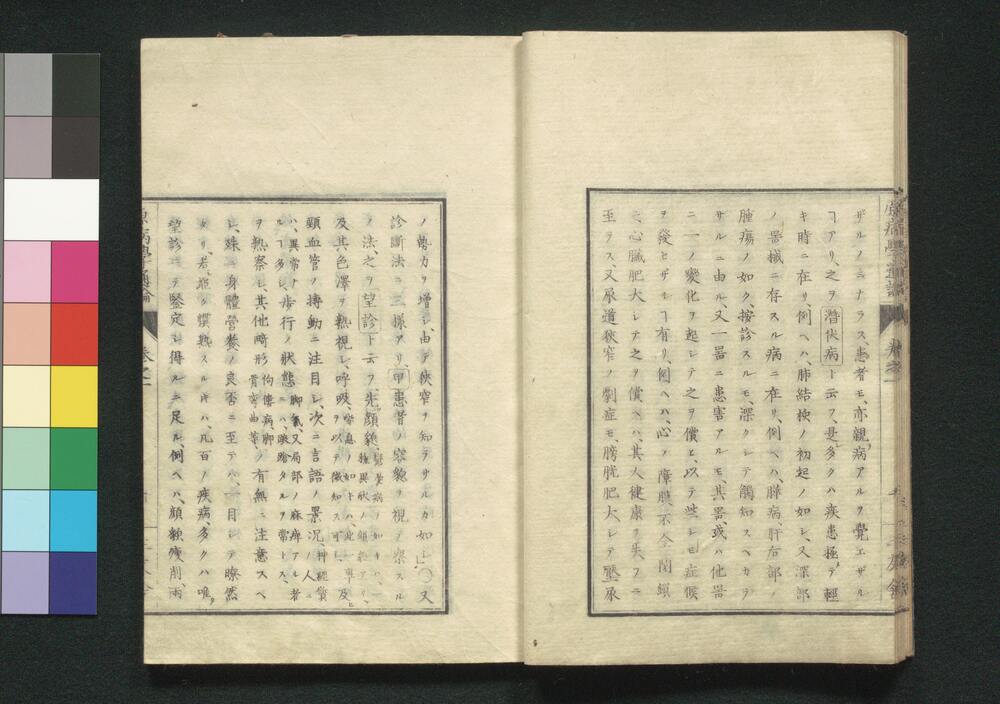 ザルノミナラス、患者モ、亦親ラ病アルヲ覺エザル
ヿアリ、之ヲ潛伏病ト云フ、是レ多クハ疾患極テ輕
キ時ニ在リ、例ヘハ、肺結核ノ初起ノ如シ、又深部
ノ器械ニ存スル病ニ在リ、例ヘハ、膵病、肝右部ノ
腫瘍ノ如ク、按診スルモ、深クシテ觸知スヘカラ
サルニ由ル、又一器ニ患害アルモ、其器或ハ他器
ニ一ノ變化ヲ起シテ之ヲ償ヒ、以テ些シモ症候
ヲ發セザルヿ有リ、例ヘハ、心ノ障膜不全閉鎖
ニ心臟肥大シテ之ヲ償ヘハ、其人健康ヲ失フニ
至ラス、又尿道狹窄ノ劇症モ、膀胱肥大シテ壓尿
ノ勢力ヲ增シ、由テ狹窄ヲ知ラサルカ如シ」〇又
診斷法ニ三樣アリ、甲患者ノ容貌ヲ視テ察スル
ノ法、之ヲ望診ト云フ、先顏貌
及其色澤ヲ熟視シ、呼吸
頸血管ノ搏動ニ注目シ、次ニ言語ノ景況、人ニ
ハ、異常ノ狀態
ルヿ多シ、步行ノ狀態、脚氣、又局部ノ麻痺アル者ニハ、
ヲ熟察シ、其他畸形佝僂病、脚骨彎曲等ノ有無ニ注意スヘ
シ、殊ニ身體營養ノ良否ニ至テハ、一目シテ瞭然
タリ、若シ能ク慣熟スルキハ、凡百ノ疾病、多クハ唯
望診ニテ鑒定シ得ルニ足ル、例ヘハ、顏頰瘦削、兩
原病學通論
卷之一